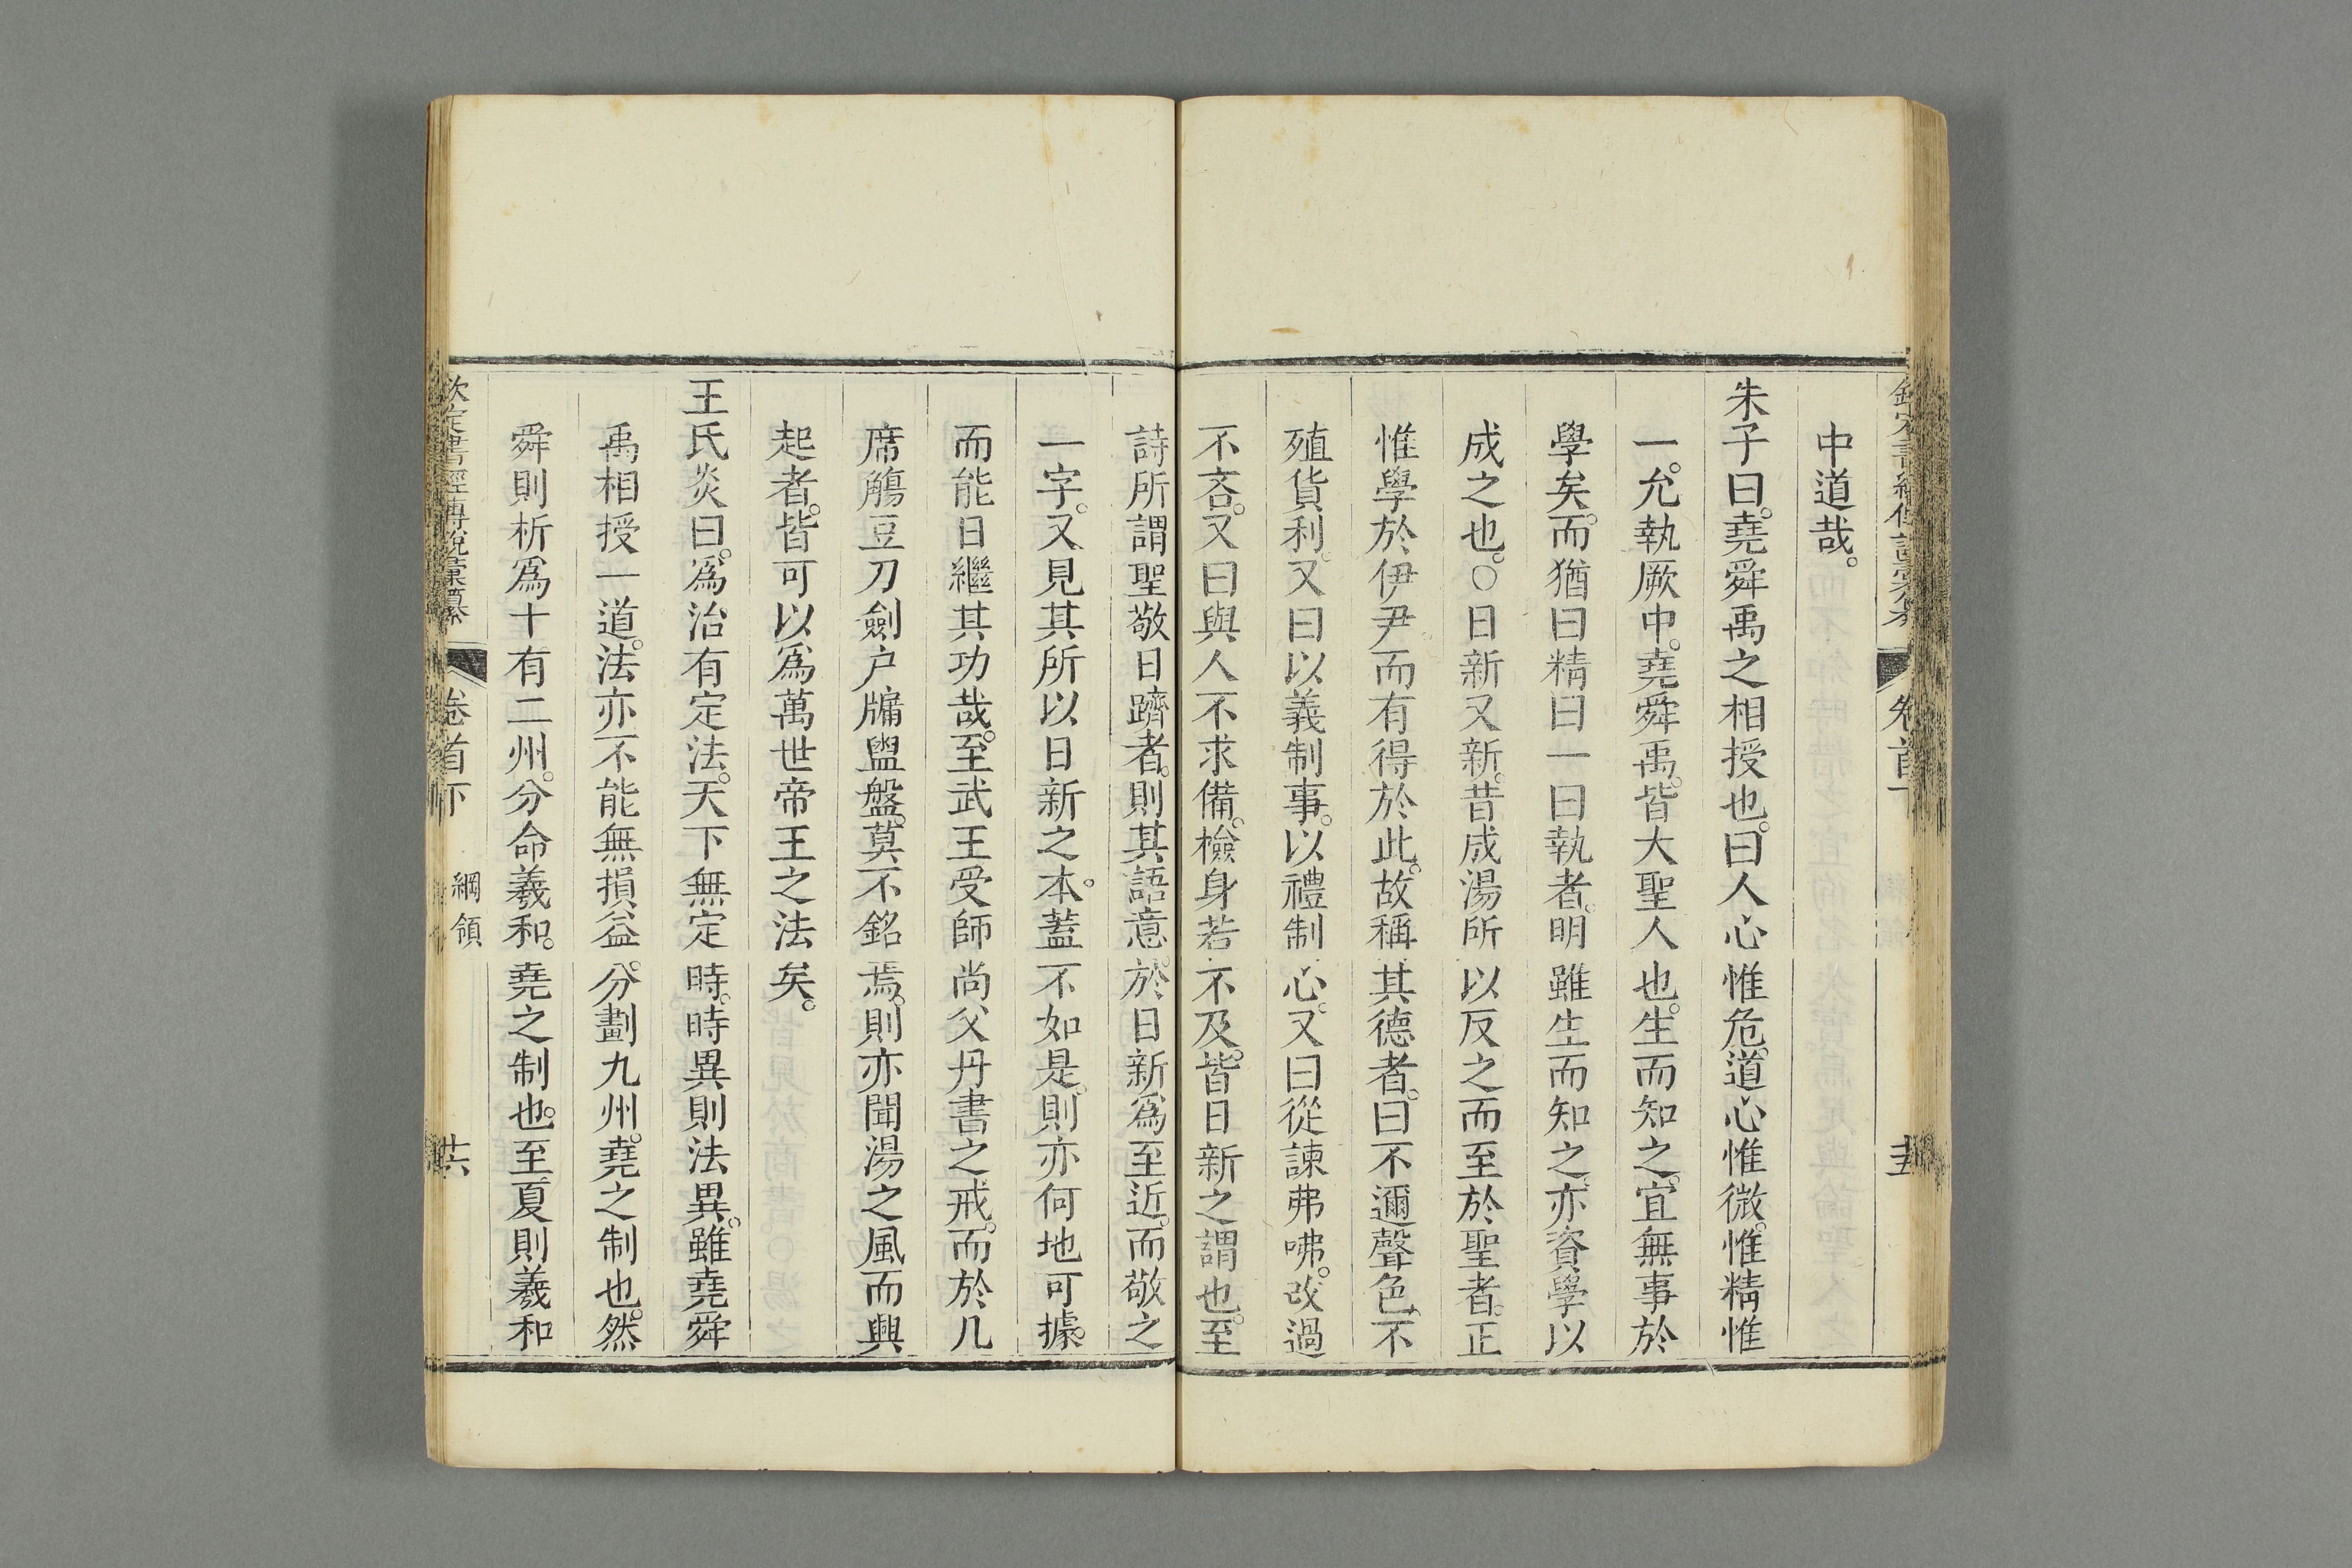 中道哉。
朱子曰。堯舜禹之相授也。曰人心惟危。道心惟微。惟精惟
一。允執厥中。堯舜禹。皆大聖人也。生而知之。宜無事於
學矣。而猶曰精曰一曰執者。明雖生而知之。亦資學以
成之也。○日新又新。昔成湯所以反之而至於聖者。正
惟學於伊尹。而有得於此。故稱其德者。曰不邇聲色。不
殖貨利。又曰以義制事。以禮制心。又曰從諫弗咈。改過
不吝。又曰與人不求備。檢身若不及。皆日新之謂也。至
詩所謂聖敬日躋者。則其語意。於日新爲至近。而敬之
一字。又見其所以日新之本。蓋不如是。則亦何地可據。
而能日繼其功哉。至武王受師尚父丹書之戒。而於几
席觴豆刀劍户牖盥盤。莫不銘焉。則亦聞湯之風而興
起者。皆可以爲萬世帝王之法矣。
王氏炎曰。爲治有定法。天下無定時。時異則法異。雖堯舜
禹相授一道。法亦不能無損益。分劃九州。堯之制也。然
舜則析爲十有二州。分命羲和。堯之制也。至夏則羲和
欽定書經傳說彙纂 卷首下 綱領 廿六